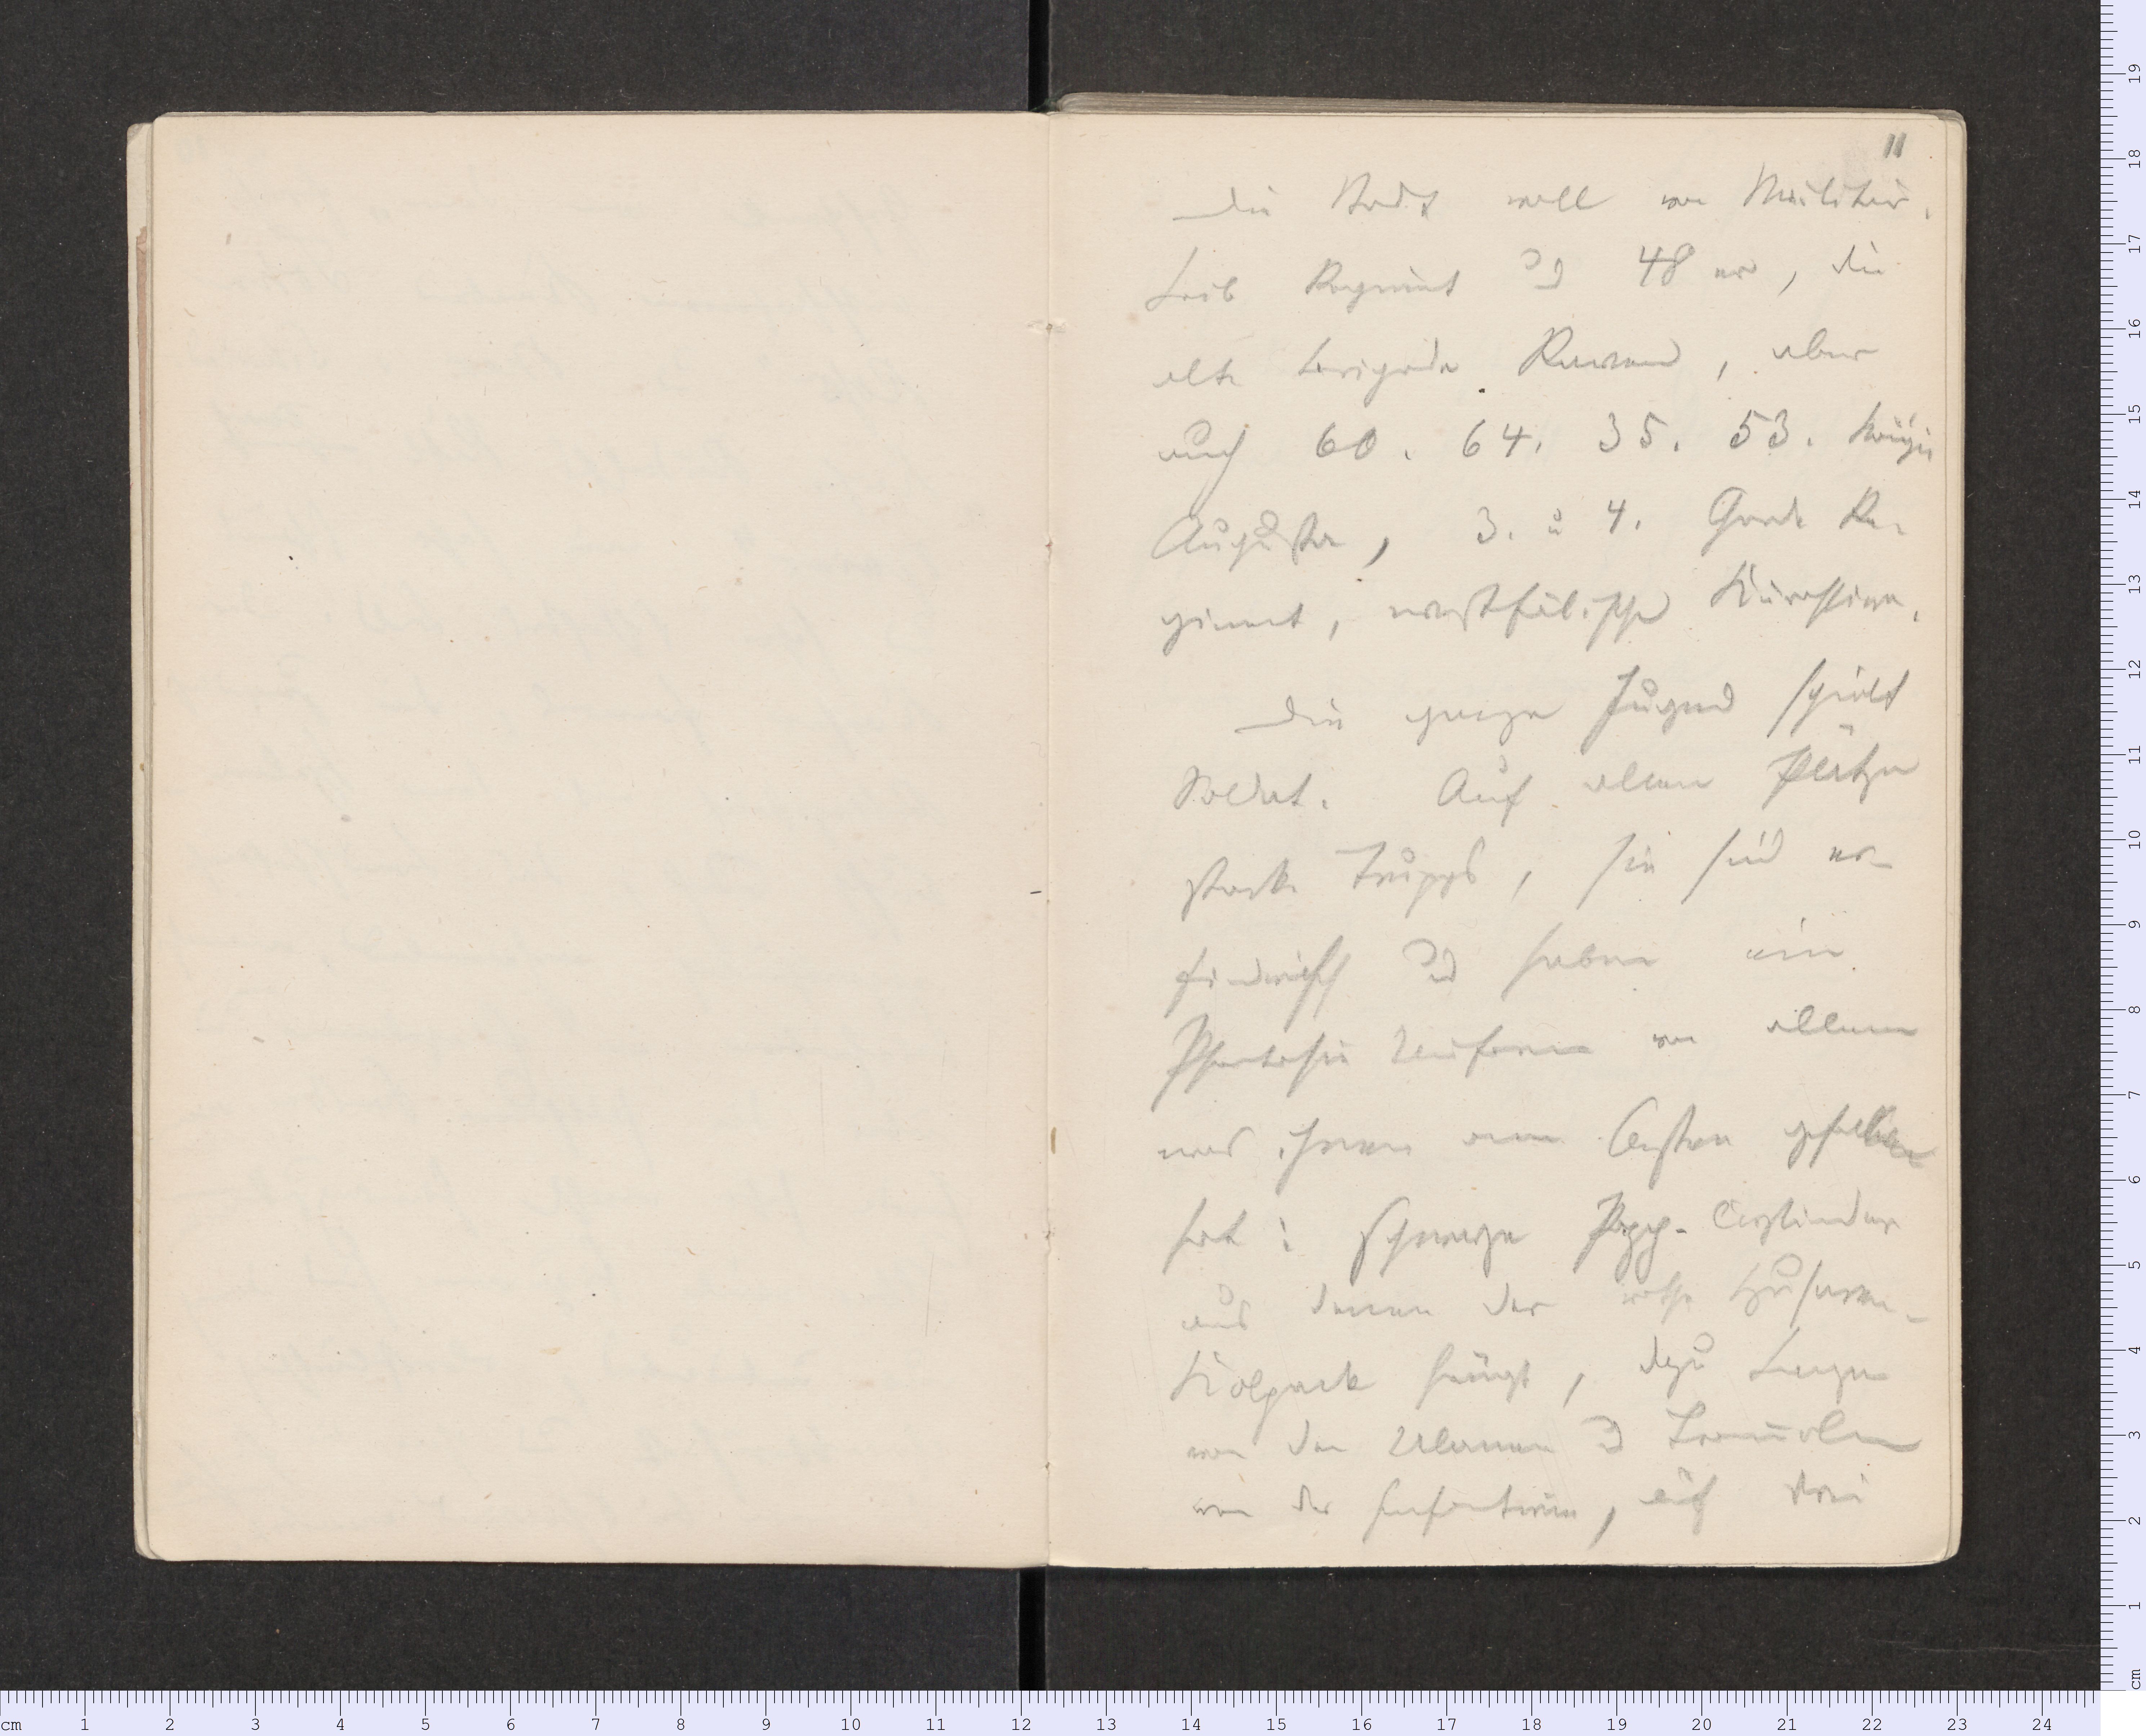 11
Die Stadt voll von Militär.
Leib Regiment und 48er, die
alte Brigade Raven, aber
auch 60. 64. 35. 53. Königin
Augusta, 3. u 4. Garde Re-
giment, westfälische Kürassiere.
Die ganze Jugend spielt
Soldat. Auf allen Plätzen
starke Trupps, sie sind er-
finderisch und haben eine
Phantasie Uniform von allem
was ihnen am besten gefallen
hat: schwarze Papp-Cylinder
aus denen der rothe Husaren-
Kolpack hängt, dazu Lanzen
von den Ulanen und Trommeln
von der Infanterie, auf drei